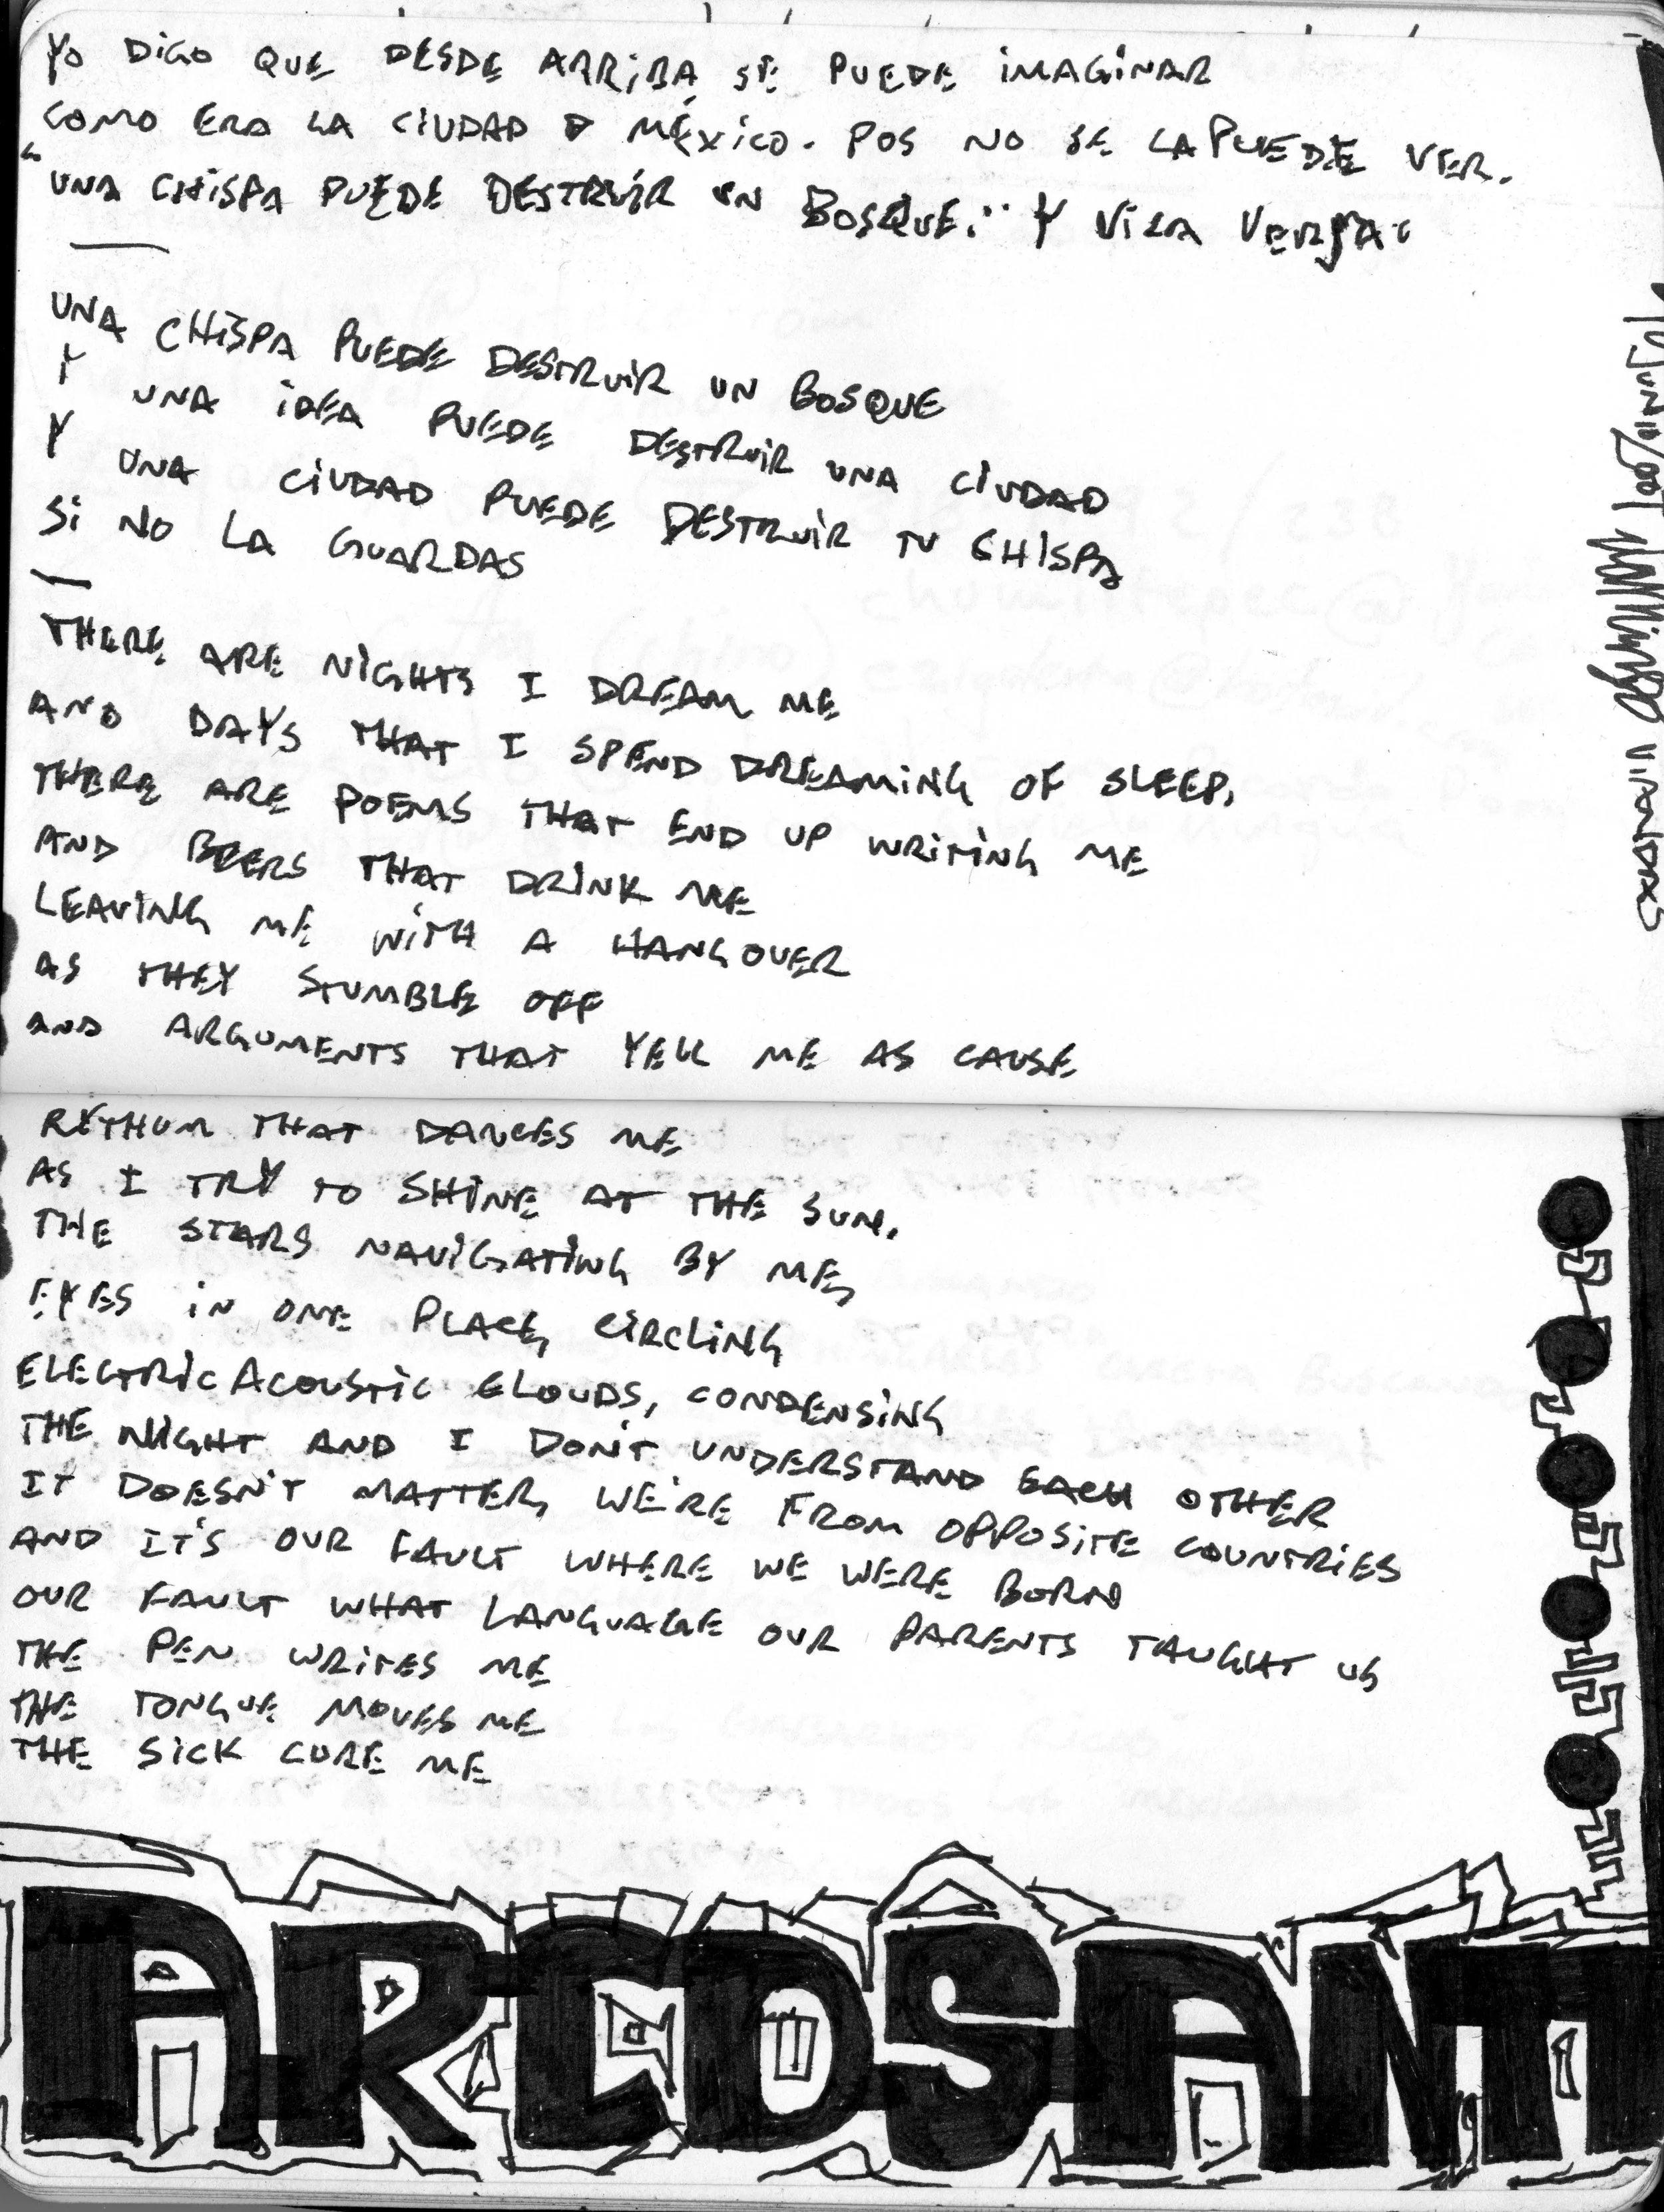 YO DIGO QUE DESDE ARRIBA SE PUEDE IMAGINAR
COMO ERA LA CIUDAD D MÉXICO. POS NO SE LA PUEDE VER.
"UNA CHISPA PUEDE DESTRUIR UN BOSQUE." Y VICA VERSA.
UNA CHISPA PUEDE DESTRUIR UN BOSQUE
Y UNA IDEA PUEDE DESTRUIR UNA CIUDAD
Y UNA CIUDAD PUEDE DESTRUIR TU CHISPA
SI NO LA GUARDAS
THERE ARE NIGHTS I DREAM ME
AND DAYS THAT I SPEND DREAMING OF SLEEP,
THERE ARE POEMS THAT END UP WRITING ME
AND BEERS THAT DRINK ME
LEAVING ME WITH A HANGOVER
AS THEY STUMBLE OFF
AND ARGUMENTS THAT YELL ME AS CAUSE
RYTHUM THAT DANCES ME
AS I TRY TO SHINE AT THE SUN,
THE STARS NAVIGATING BY ME,
EYES IN ONE PLACE, CIRCLING
ELECTRIC ACOUSTIC CLOUDS, CONDENSING
THE NIGHT AND I DON'T UNDERSTAND EACH OTHER
IT DOESN'T MATTER, WE'RE FROM OPPOSITE COUNTRIES
AND IT'S OUR FAULT WHERE WE WERE BORN
OUR FAULT WHAT LANGUAGE OUR PARENTS TAUGHT US
THE PEN WRITES ME
THE TONGUE MOVES ME
THE SICK CURE ME
ARCOSANTI